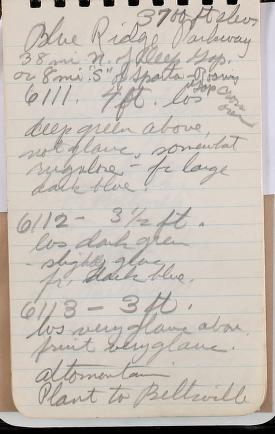 3700 ft elev.
Blue Ridge Parkway
38 mi N. of Deep Gap.
or 8 mi. "S" of Sparta-Roaring
Gap Cross
over
6111. 4 ft. lvs
deep green above,
not glauc, somewhat
rugulose - fr large
dark blue.
6112 - 3½ ft.
lvs dark green
- slightly glauc
fr. dark blue.
6113 - 3 ft.
lvs very glauc above.
fruit very glauc.
altomontain
Plant to Beltsville